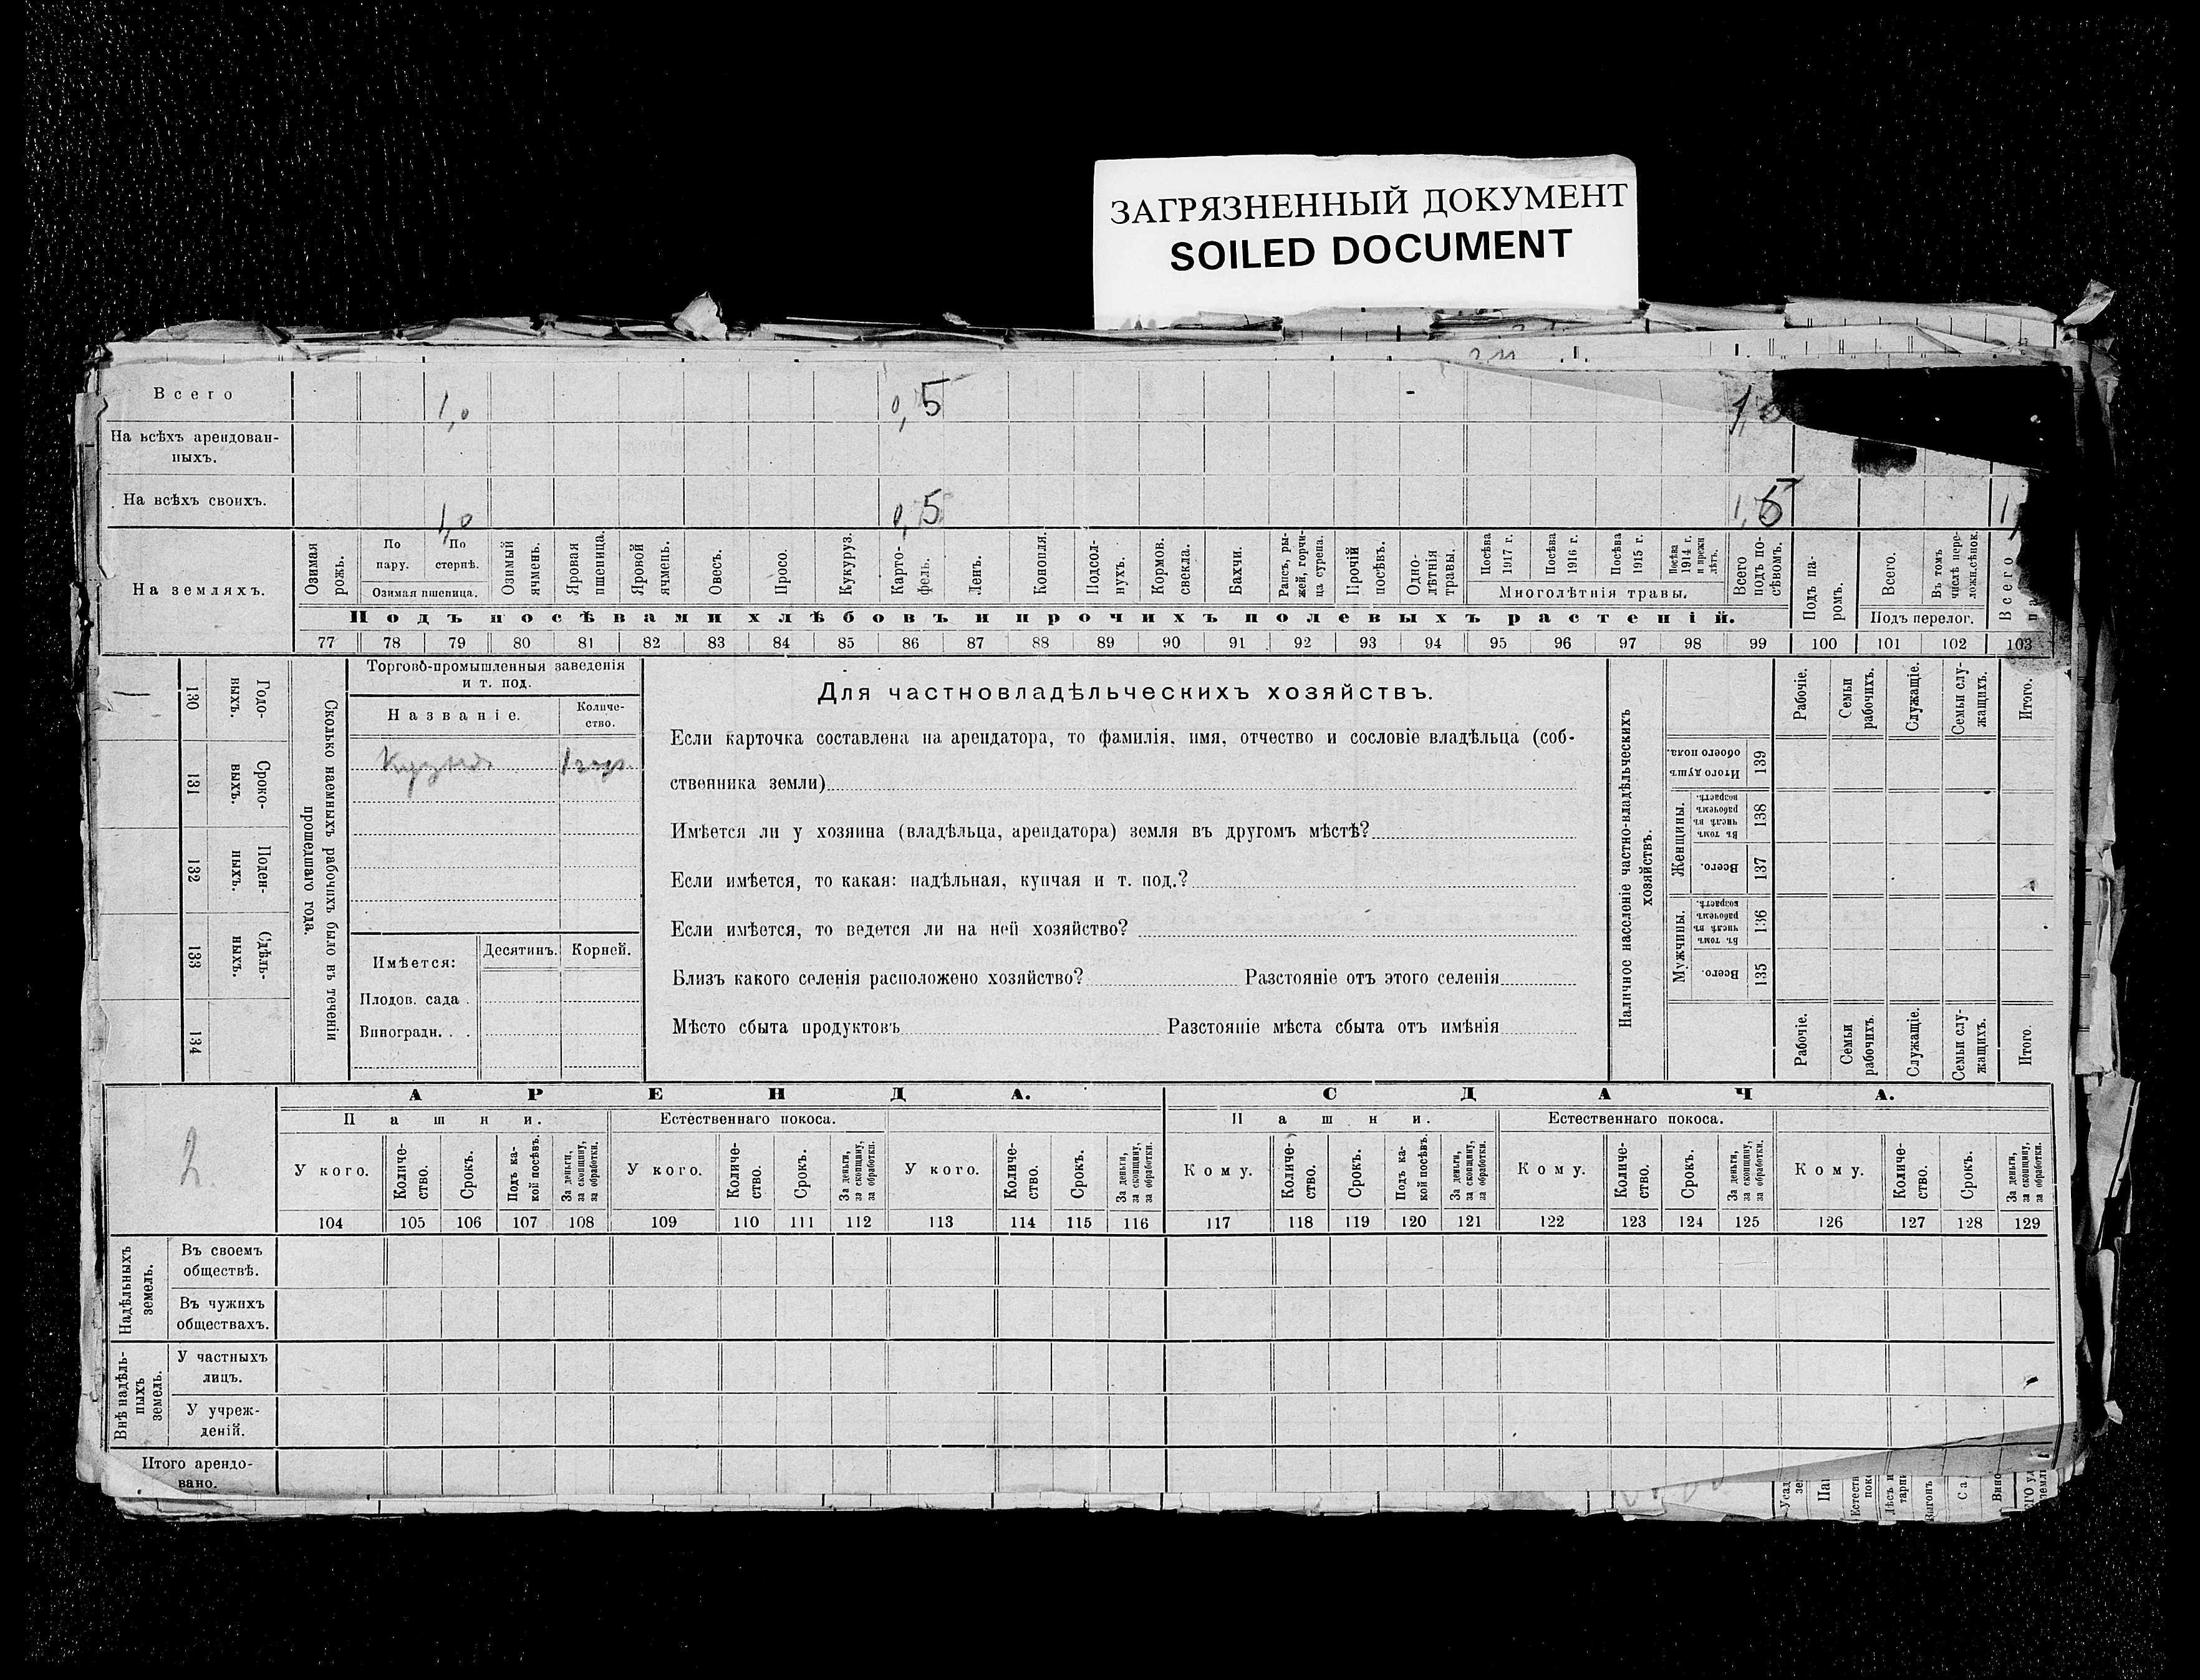 ЗАГРЯЗНЕННЫЙ ДОКУМЕНТ
SOILED DOCUMENT
Всего 1,0 0,5
На всѣхъ арендован-
ныхъ.
На всѣхъ своихъ. 1,0 0,5 1,5
На земляхъ.
Озимая рожь.
По пару.
По стернѣ.
Озимая пшеница.
Озимый ячмень.
Яровая пшеница.
Яровой ячмень.
Овесъ.
Просо.
Кукуруз.
Карто-
фель.
Ленъ.
Конопля.
Подсол-
нухъ.
Кормов. свекла.
Бахчи.
Рапсъ, ры-
жей, горчи-
ца сурепа.
Прочій посѣвъ.
Одно-
лѣтнія травы.
Посѣва 1917 г.
Посѣва 1916 г.
Посѣва 1915 г.
Посѣва 1914 г. и прежн лѣтъ.
Многолѣтнія травы.
Всего подъ по-
сѣвомъ.
Подъ па-
ромъ.
Всего.
Въ томъ числѣ пере-
ложн.сѣнок.
Подъ перелог.
Всего
Подъ посѣвами хлѣбовъ и прочихъ полевыхъ растеній.
77 78 79 80 81 82 83 84 85 86 87 88 89 90 91 92 93 94 95 96 97 98 99 100 101 102 103
130 Годо-
выхъ.
131 Сроко-
выхъ.
132 Поден-
ныхъ.
133 Сдѣль-
ныхъ.
134
Сколько наемныхъ рабочихъ было въ теченіи
прошедшаго года.
Торгово-промышленныя заведенія
и т. под.
Названіе.
Количе-
ство.
Имѣется:
Десятинъ. Корней.
Плодов. сада .
Виноградн. . .
Для частновладѣльческихъ хозяйствъ.
Если карточка составлена на арендатора, то фамилія, имя, отчество и сословіе владѣльца (соб-
ственника земли)
Имѣется ли у хозяина (владѣльца, арендатора) земля въ другомъ мѣстѣ?
Если имѣется, то какая: надѣльная, купчая и т. под.?
Если имѣется, то ведется ли на ней хозяйство?
Близъ какого селенія расположено хозяйство? Разстояніе отъ этого селенія
Мѣсто сбыта продуктовъ Разстояніе мѣста сбыта отъ имѣнія
Наличное населеніе частно-владѣльческихъ
хозяйствъ.
Рабочіе.
Семьи рабочихъ.
Служащіе.
Семьи слу-
жащихъ.
Итого.
Итого душъ обоего пола. 139
Женщины.
Въ томъ числѣ въ рабочемъ возрастѣ. 138
Всего. 137
Мужчины.
Въ томъ числѣ въ рабочемъ возрастѣ. 136
Всего. 135
Рабочіе.
Семьи рабочихъ.
Служащіе.
Семьи слу-
жащихъ.
Итого.
2
АРЕНДА. СДАЧА.
Пашни. Естественнаго покоса. Пашни. Естественнаго покоса.
У кого.
Количе-
ство.
Срокъ.
Подъ ка-
кой посѣвъ.
За деньги, за скопщину, за обработки.
У кого.
Количе-
ство.
Срокъ.
За деньги, за скопщину, за обработки.
У кого.
Количе-
ство.
Срокъ.
За деньги, за скопщину, за обработки.
Кому.
Количе-
ство.
Срокъ.
Подъ ка-
кой посѣвъ.
За деньги, за скопщину, за обработки.
Кому.
Количе-
ство.
Срокъ.
За деньги, за скопщину, за обработки.
Кому.
Количе-
ство.
Срокъ.
За деньги, за скопщину, за обработки.
104 105 106 107 108 109 110 111 112 113 114 115 116 117 118 119 120 121 122 123 124 125 126 127 128 129
Надѣльныхъ земель.
Въ своемъ
обществѣ.
Въ чужихъ
обществахъ.
Внѣ надѣль-
ныхъ земель.
У частныхъ
лицъ.
У учреж-
деній.
Итого арендо-
вано.